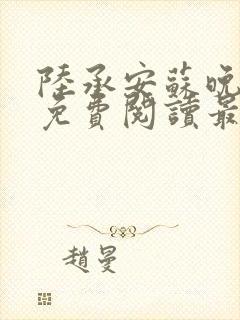 陸承安蘇晚
免費閱讀最
趙曼